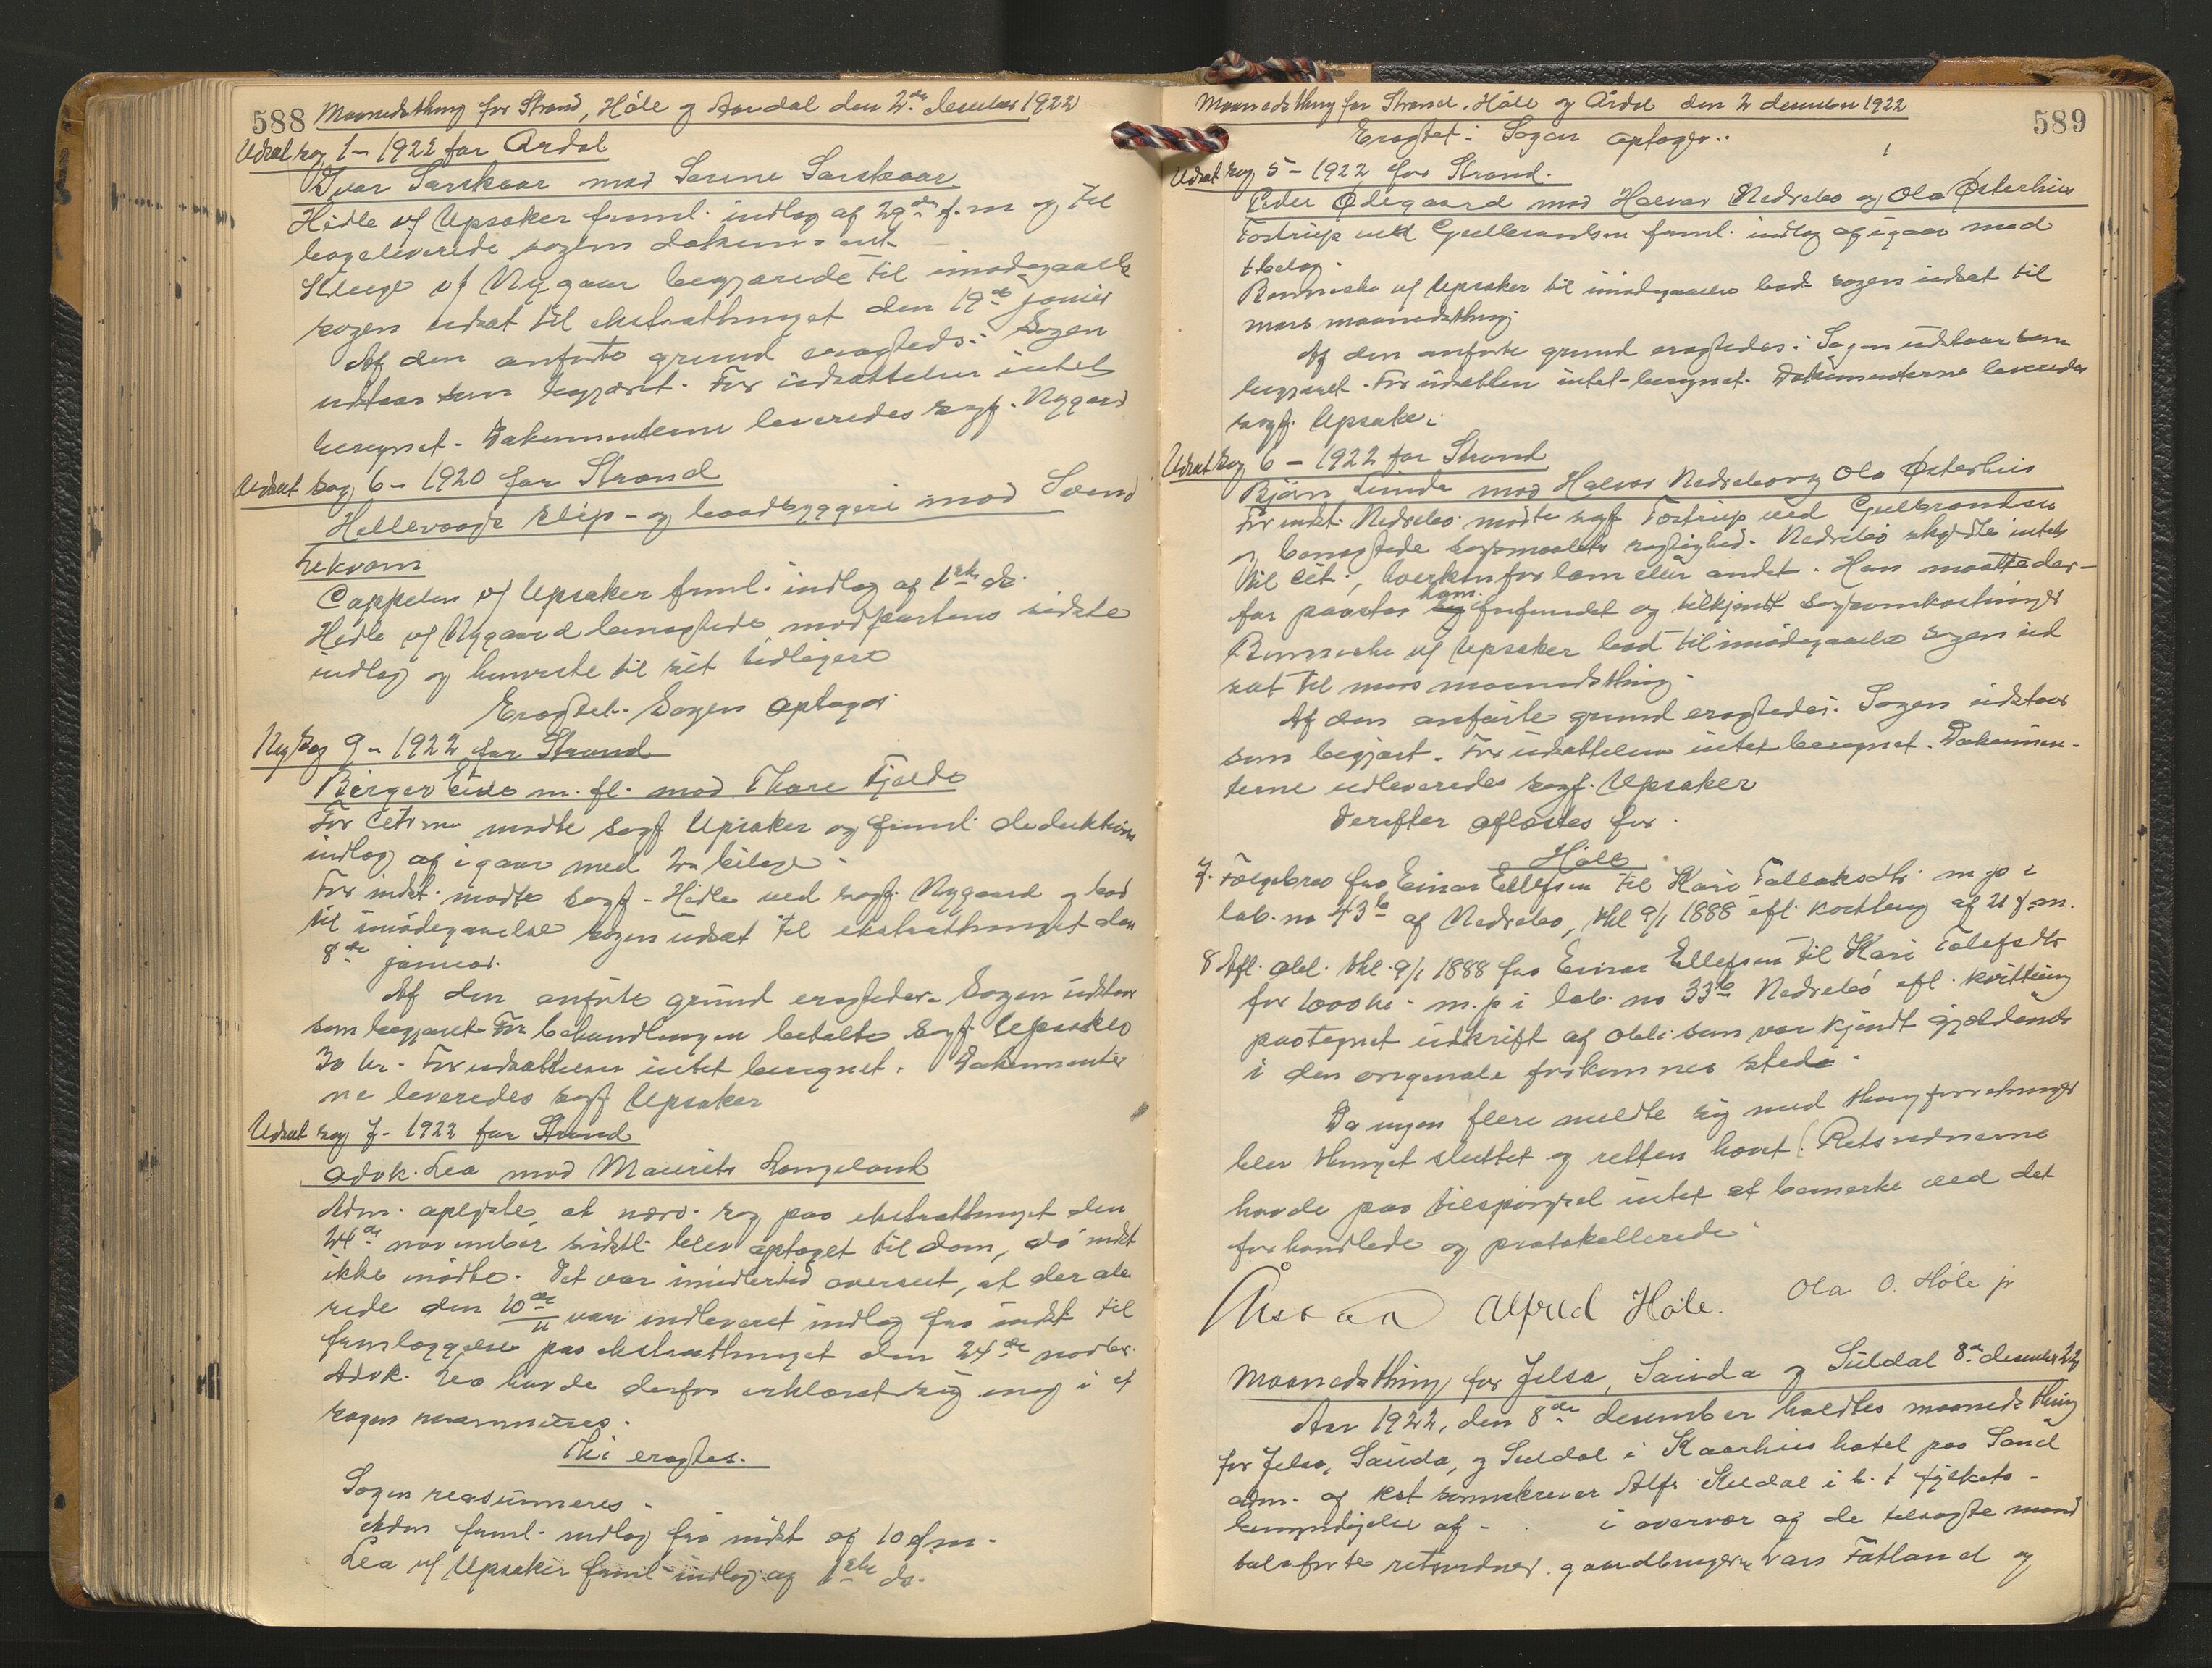 588 Maanedsthing for Strand, Höle og Aardal den 2de desember 1922
Udsat sag 1 - 1922 for Årdal
Ivar Sarskaar mod Serine Sarskaar
Hidle v/ Upsaker freml. indlæg af 29de f.m og til
bageleverede sagens dokum. ent
Kluge v/ Nygaar begjærede til imødegaaelse
sagen udsat til ekstrathinget den 19de januar
Af den anførte grund eragtedes: Sagen
udstaar som begjæret. For udsættelsen intet
beregnet. Dokumenterne leveredes sagf. Nygaard
Udsat sag 6 - 1920 for Strand
Hellevaags slip- og baadbyggeri mod Svend
Tekvam
Cappelen v/ Upsaker freml. indlæg af 1ste ds.
Hidle v/ Nygaard benægtede modpartens sidste
indlæg og henviste til sit tidligere
Eragtet. Sagen optages
Ny sag 9 - 1922 for Strand
Birger Eide m. fl. mod Thore Fjelde
For citrne mødte sagf Upsaker og freml. deduktions
indlæg af igaar med 2 bilage.
For indst. mødte sagf. Hidle ved sagf. Nygaard og bad
til imødegaaelse sagen udsat til ekstrathinget den
8de januar.
Af den anførte grund eragtedes. Sagen udstaar
som begjæret. For behandlingen betalte sagf. Upsaker
30 kr. For udsættelsen intet beregnet. Dokumenter
ne leveredes sagf Upsaker
Udsat sag 7 - 1922 for Strand
Advk. Lea mod Maurits Langeland
Adm. oplyste, at nærv. sag paa ekstrathinget den
24de november sidstl. blev optaget til dom, da indst
ikke mødte. Det var imidlertid overseet, at der alle
rede den 10de/11 var indleveret indlæg fra indst til
fremlæggelse paa ekstrathinget den 24de novbr.
Advk. Lea havde derfor erklæret sig enig i at
sagen reasumeres.
Thi eragtes.
Sagen reasumeres.
Adm freml. indlæg fra indst af 10 f.m.
Lea v/ Upsaker freml indlæg af 1ste ds.
Maanedsthing for Strand, Höle og Årdal den 2 desember 1922 589
Eragtet: Sagen optages.
Udsat sag 5 - 1922 for Strand.
Peder Ødegaard mod Halvor Nedrebø og Ola Østerhus
Tostrup ved Gulbrandsen freml. indlæg af igaar med
1 bilag.
Rønneske v/ Upsaker til imødegaaelse bad sagen udsat til
mars maanedsthing.
Af den anførte grund eragtedes: Sagen udstaar som
begjæret. For udsættelsen intet beregnet. Dokumenterne leveredes
sagf. Upsaker.
Udsat sag 6 - 1922 for Strand
Björn Linde mod Halvor Nedrebø og Ola Østerhus
For indst. Nedrebø mødte sagf Tostrup ved Gulbrandsen
og benægtede søgsmaalets rigtighed. Nedrebø skyldte intet
til cit., hverken for løn eller andet. Han maatte der-
for paastaa ham frifundet og tilkjendt sagsomkostninger
Rønneske v/ Upsaker bad til imødegaaelse sagen ud
sat til mars maanedsthing.
Af den anførte grund eragtedes: Sagen udstaar
som begjært. For udsættelsen intet beregnet. Dokumen-
terne udleveredes sagf. Upsaker
Derefter aflæstes for
Höle
7. Følgebrev fra Einar Ellefsen til Kari Tallaksdtr. m. p i
løb. no 43b af Nedrebø, thl 9/1 1888 efl. kvittring af 21 f.m.
8 Afl. obl. thl. 9/1 1888 fra Einar Ellefsen til Kari Tolefsdtr
for 1000 kr. m. p i løb. no 33b Nedrebø efl. kvittring
paategnet udkrift af obli. som var kjendt gjældende
i den originale forkomnes sted.
Da ingen flere meldte sig med thingforretninger
blev thinget sluttet og retten hævet. Retsvidnerne
havde paa tilspørgsel intet at bemerke ved det
forhandlede og protokollerede
Alfred Høle. Ola O. Høle jr
Maanedsthing for Jelsa, Sauda og Suldal 8de desember 22
Aar 1922, den 8de desember holdtes maanedsthing
for Jelsa, Sauda, og Suldal i Kaarhus hotel paa Sand
adm. af kst sorenskriver Alfr. Kieldal i h. t fylkets-
bemyndigelse af - . i overvær af de tilsagte mænd
talsførte retsvidner. gaardbrugerne Lars Fatland og